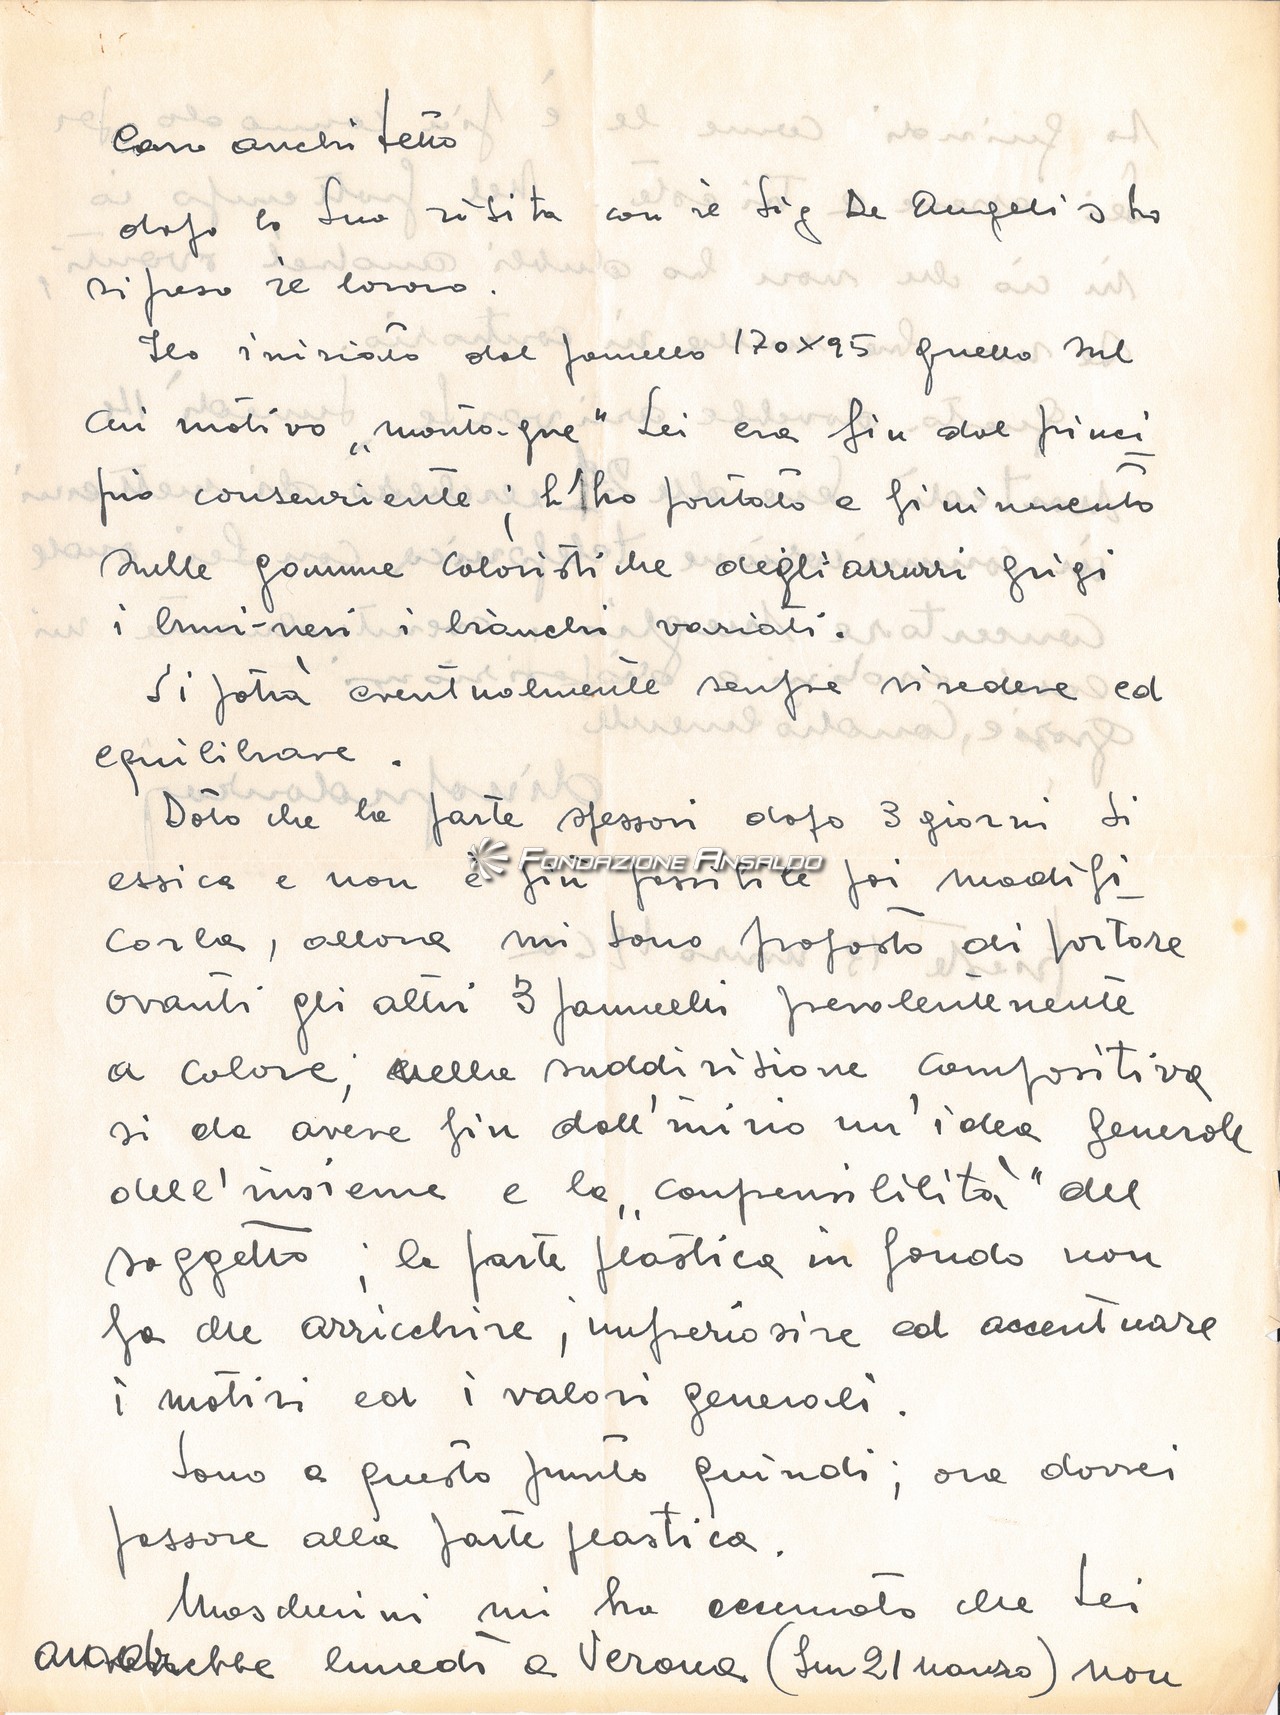 Caro architetto
dopo la Sua visita con il Sig De Angelis ho
ripreso il lavoro.
Ho iniziato dal pannello 170x95 quello sul
cui motivo „montagne" Lei era fin dal princi
pio consenziente; l'ho portato a finimento
sulle gamme coloristiche degli azzurri grigi
i bruni-neri i bianchi variati.
Si potrà eventualmente sempre rivedere ed
equilibrare.
Dato che la parte spessori dopo 3 giorni si
FONDAZIONE ANSALDO
essica e non è più possibile poi modifi
carla, allora mi sono proposto di portare
avanti gli altri 3 pannelli prevalentemente
a colore; nella suddivisione compositiva
si da avere fin dall'inizio un'idea generale
dell'insieme e la „compensibilità" del
soggetto; la parte plastica in fondo non
fa che arricchire, impreziosire ed accentuare
i motivi ed i valori generali.
Sono a questo punto quindi; ora dovrei
passare alla parte plastica.
Mascherini mi ha accennato che Lei
andrebbe lunedì a Verona (Lun 21 marzo) non